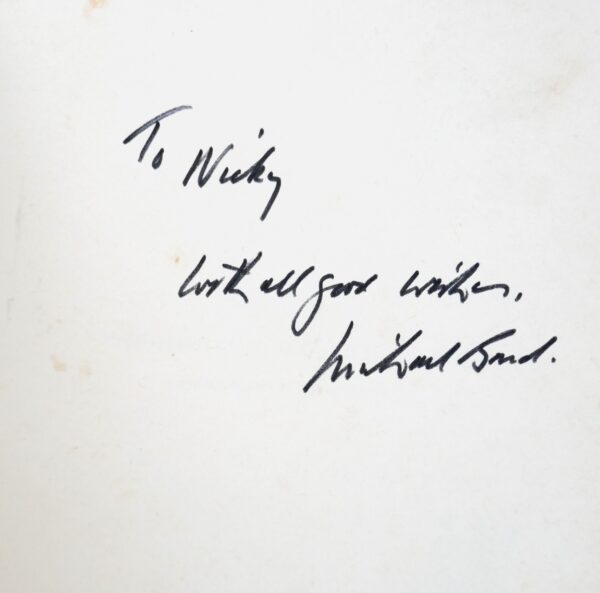 To Nicky
with all good wishes,
Michael Bond.